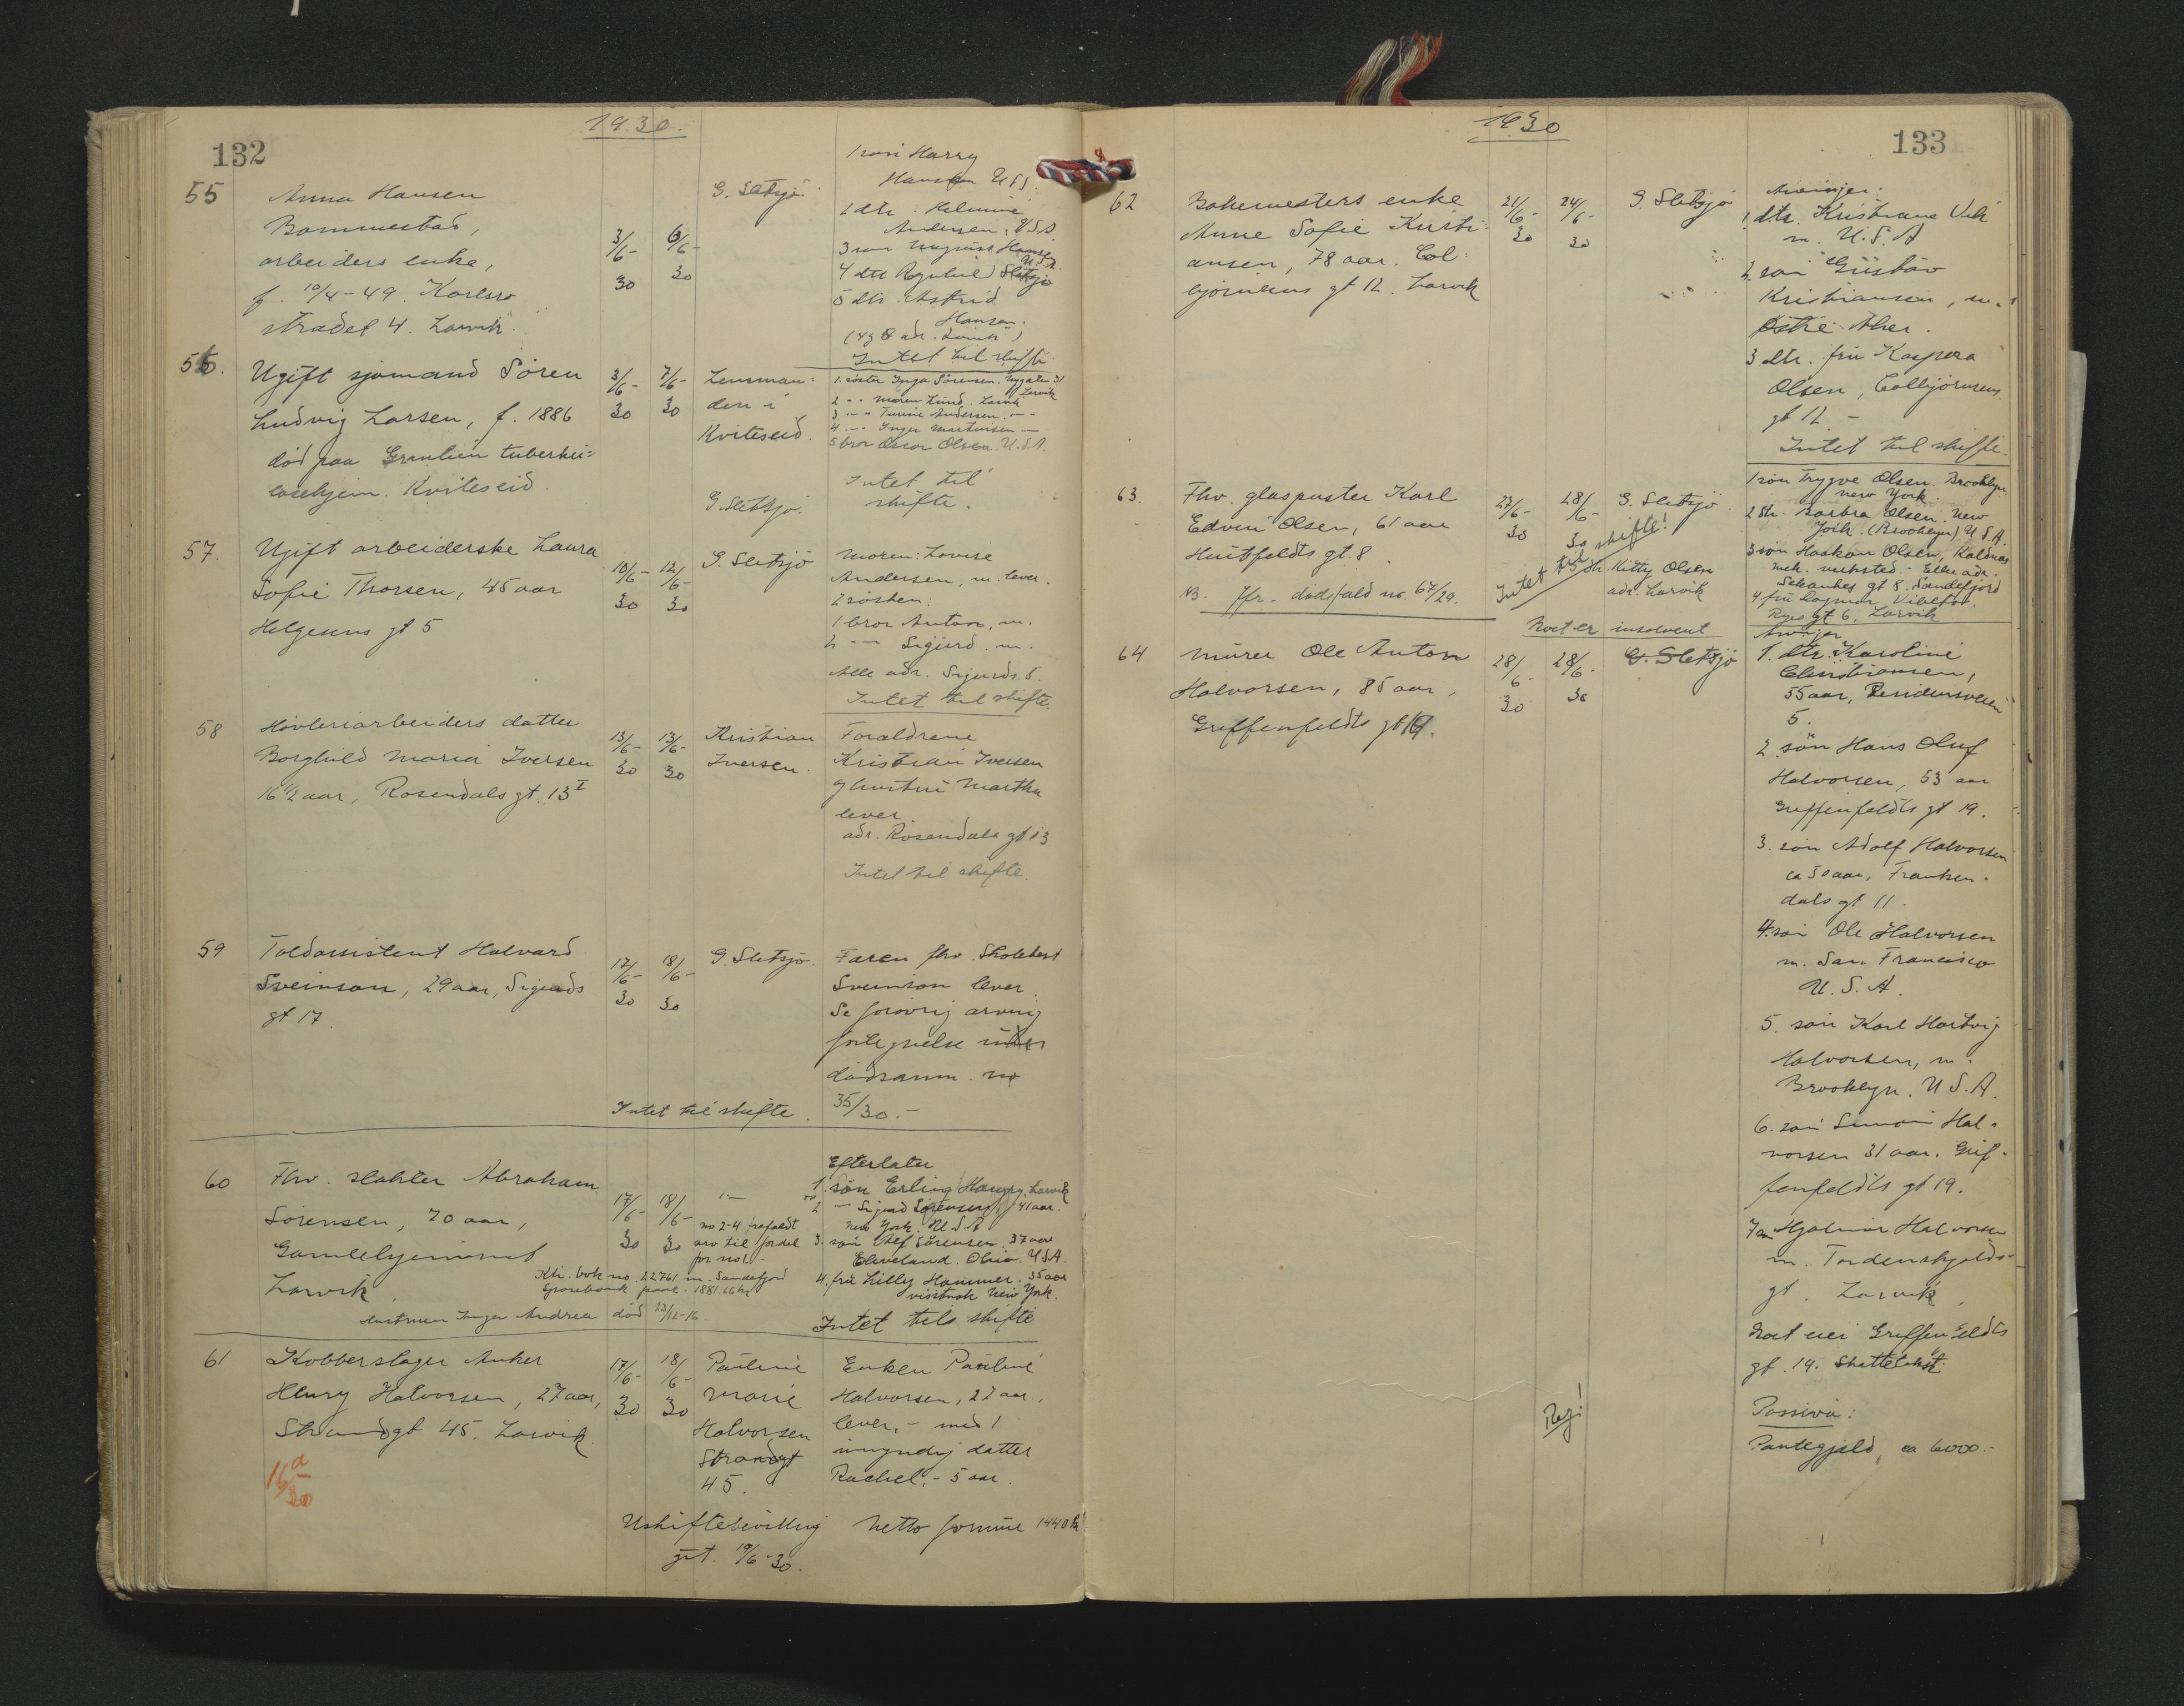 132
1930.
55
Anna Hansen
Bommestad,
arbeiders enke,
f. 10/4-49. Karlsro
strædet 4. Larvik.
3/6-30
6/6-30
G. Sletsjö.
1 søn Harry
Hansen USA
2 dtr. Helmine
Andersen, USA
3 søn Magnus Hansen
U.S.A.
4 dtr Ragnhil) Sletsjö
5 dtr. Astrid
Hansen.
Intet til skifte.
56.
Ugift sjømand Søren
Ludvig Larsen, f. 1886
död paa Grenlien tuberku=
losehjem. Kviteseid.
3/6-30
7/6-30
Lensman-
den i
Kviteseid.
G. Sletsjö.
1. søster Inga Sörensen. Nygaten 31
Larvik
2 -"- Maren Lund. Larvik
3 -"- Tunine Andersen. -"-
4 -"- Inger Martinsen -
5 bror Oscar Olsen. U.S.A.
Intet til
skifte.
57.
Ugift arbeiderske Laura
Sofie Thorsen, 45 aar
Helgesens gt 5
10/6-30
12/6-30
G. Sletsjö
Moren: Lovise
Andersen, m. lever.
2 søsken:
1 bror Anton, m.
2 -"- Sigurd m.
Alle adr. Sigurds. 5.
Intet til skifte.
58
Hövleriarbeiders datter
Borghild Maria Iversen
16 1/2 aar, Rosendals gt. 13 I
13/6-30
13/6-30
Kristian
Iversen.
Forældrene
Kristian Iversen
og hustru Martha
lever.
adr. Rosendals gt 13
Intet til skifte.
59
Toldassistent Halvard
Sveinson, 29 aar, Sigurds
gt 17.
17/6-30
18/6-30
G. Sletsjö.
Faren fhv. Skolebest
Sveinson lever.
Se forøvrig arving
fortegnelse under
dödsanm. no
35/30.-
Intet til skifte.
60
Fhv. slakter Abraham
Sörensen, 70 aar,
Gamlehjemmet
Larvik
17/6-30
18/6-30
"-
no 2-4 frafaldt
arv til fordel
for no 1.-
Ktr. bok no. 22761 m. Sandefjord
Sparebank paal. 1881.66 kr
Hustruen Inger Andrea död 23/12-16.
Efterlater
1. søn Erling Haugry, Larvik
2 - Sigurd Sörensen, 41 aar.
New York. U.S.A
3. søn Alf Sörensen. 37 aar
Cleveland. Ohio. U.S.A.
4. frü Lilly Hammer. 35 aar
visstnok New York.
Intet til skifte
61
Kobberslager Anker
Henry Halvorsen, 27 aar,
Strandgt 45. Larvik.
16 a/30
17/6-30
18/6-30
Pauline
Marie
Halvorsen
Strandgt
45.
Enken Pauline
Halvorsen, 27 aar,
lever,- med 1
umyndig datter
Rachel,- 5 aar.
Uskiftebevilling
git. 19/6-30.
Netto formue 1440 kr
133
1930
62
Bakemesters enke
Anne Sofie Kristi-
ansen, 78 aar. Col-
björnsens gt 12. Larvik
21/6-30
24/6-30
G. Sletsjö
Arvinger:
1. dtr. Kristiane Vik
m. U.S.A
2. søn Gustav
Kristiansen, m.
Østre Aker.
3 dtr. frü Kaspara
Olsen, Colbjörnsens
gt 12 -
Intet til skifte.
63.
Fhv. glaspuster Karl
Edvin Olsen, 61 aar
Huitfeldts gt. 8.
NB - Jfr. dödsfald no. 67/29.
27/6-30
28/6-30
G. Sletsjö
Intet til skifte!
5 dtr. Kitty Olsen
adr. Larvik
Boet er insolvent
1 søn Trygve Olsen. Brooklyn.
New York.
2 dtr. Barbra Olsen. New
York. (Brooklyn) U.S.A.
3 søn Haakon Olsen, Kaldnæs
mek. verksted.- Eller adr.
gt 8. Sandefjord
4 frü Dagmar
gt 6. Larvik
64
Murer Ole Anton
Halvorsen, 85 aar,
Griffenfeldts gt 19.
28/6-30
28/6-30
G. Sletsjö
Arvinger
1. dtr. Karoline
Christiansen,
55 aar,
5.
2. søn Hans Oluf
Halvorsen, 53 aar
Griffenfeldts gt 19.
3. søn Adolf Halvorsen
ca 50 aar, Franken-
dals gt 11.
4. søn Ole Halvorsen
m. San Francisco
U.S.A.
5. søn Karl Hartvig
Halvorsen, m.
Brooklyn. U.S.A.
6. søn Simon Hal-
vorsen 31 aar. Grif-
fenfeldts gt 19.
7 søn Hjalmar Halvorsen
m. Tordenskjolds-
gt. Larvik
Boet eier Griffenfeldts
gt. 19. Skattetakst.
Passiva:
Pantegjeld, ca 6000.-
Reg!